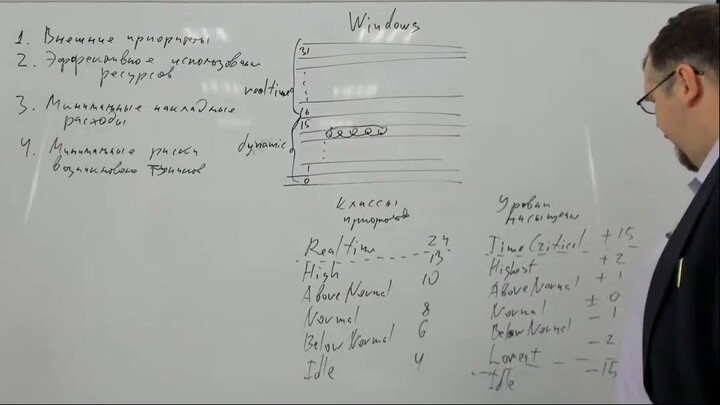 1. Внешние приоритеты
2. Эффективное использован
ресурсов
3. Минимальные накладные
расходы
4. Минимальные риски
возникновения тупиков
Windows
31
realtime
16
15
dynamic
1
0
Классы
приоритетов
Realtime 24
High 13
Above Normal 10
Normal 8
Below Normal 6
Idle 4
Уровни
насыщения
Time Critical +15
Highest +2
Above Normal +1
Normal ±0
Below Normal -1
Lowest -2
Idle -15